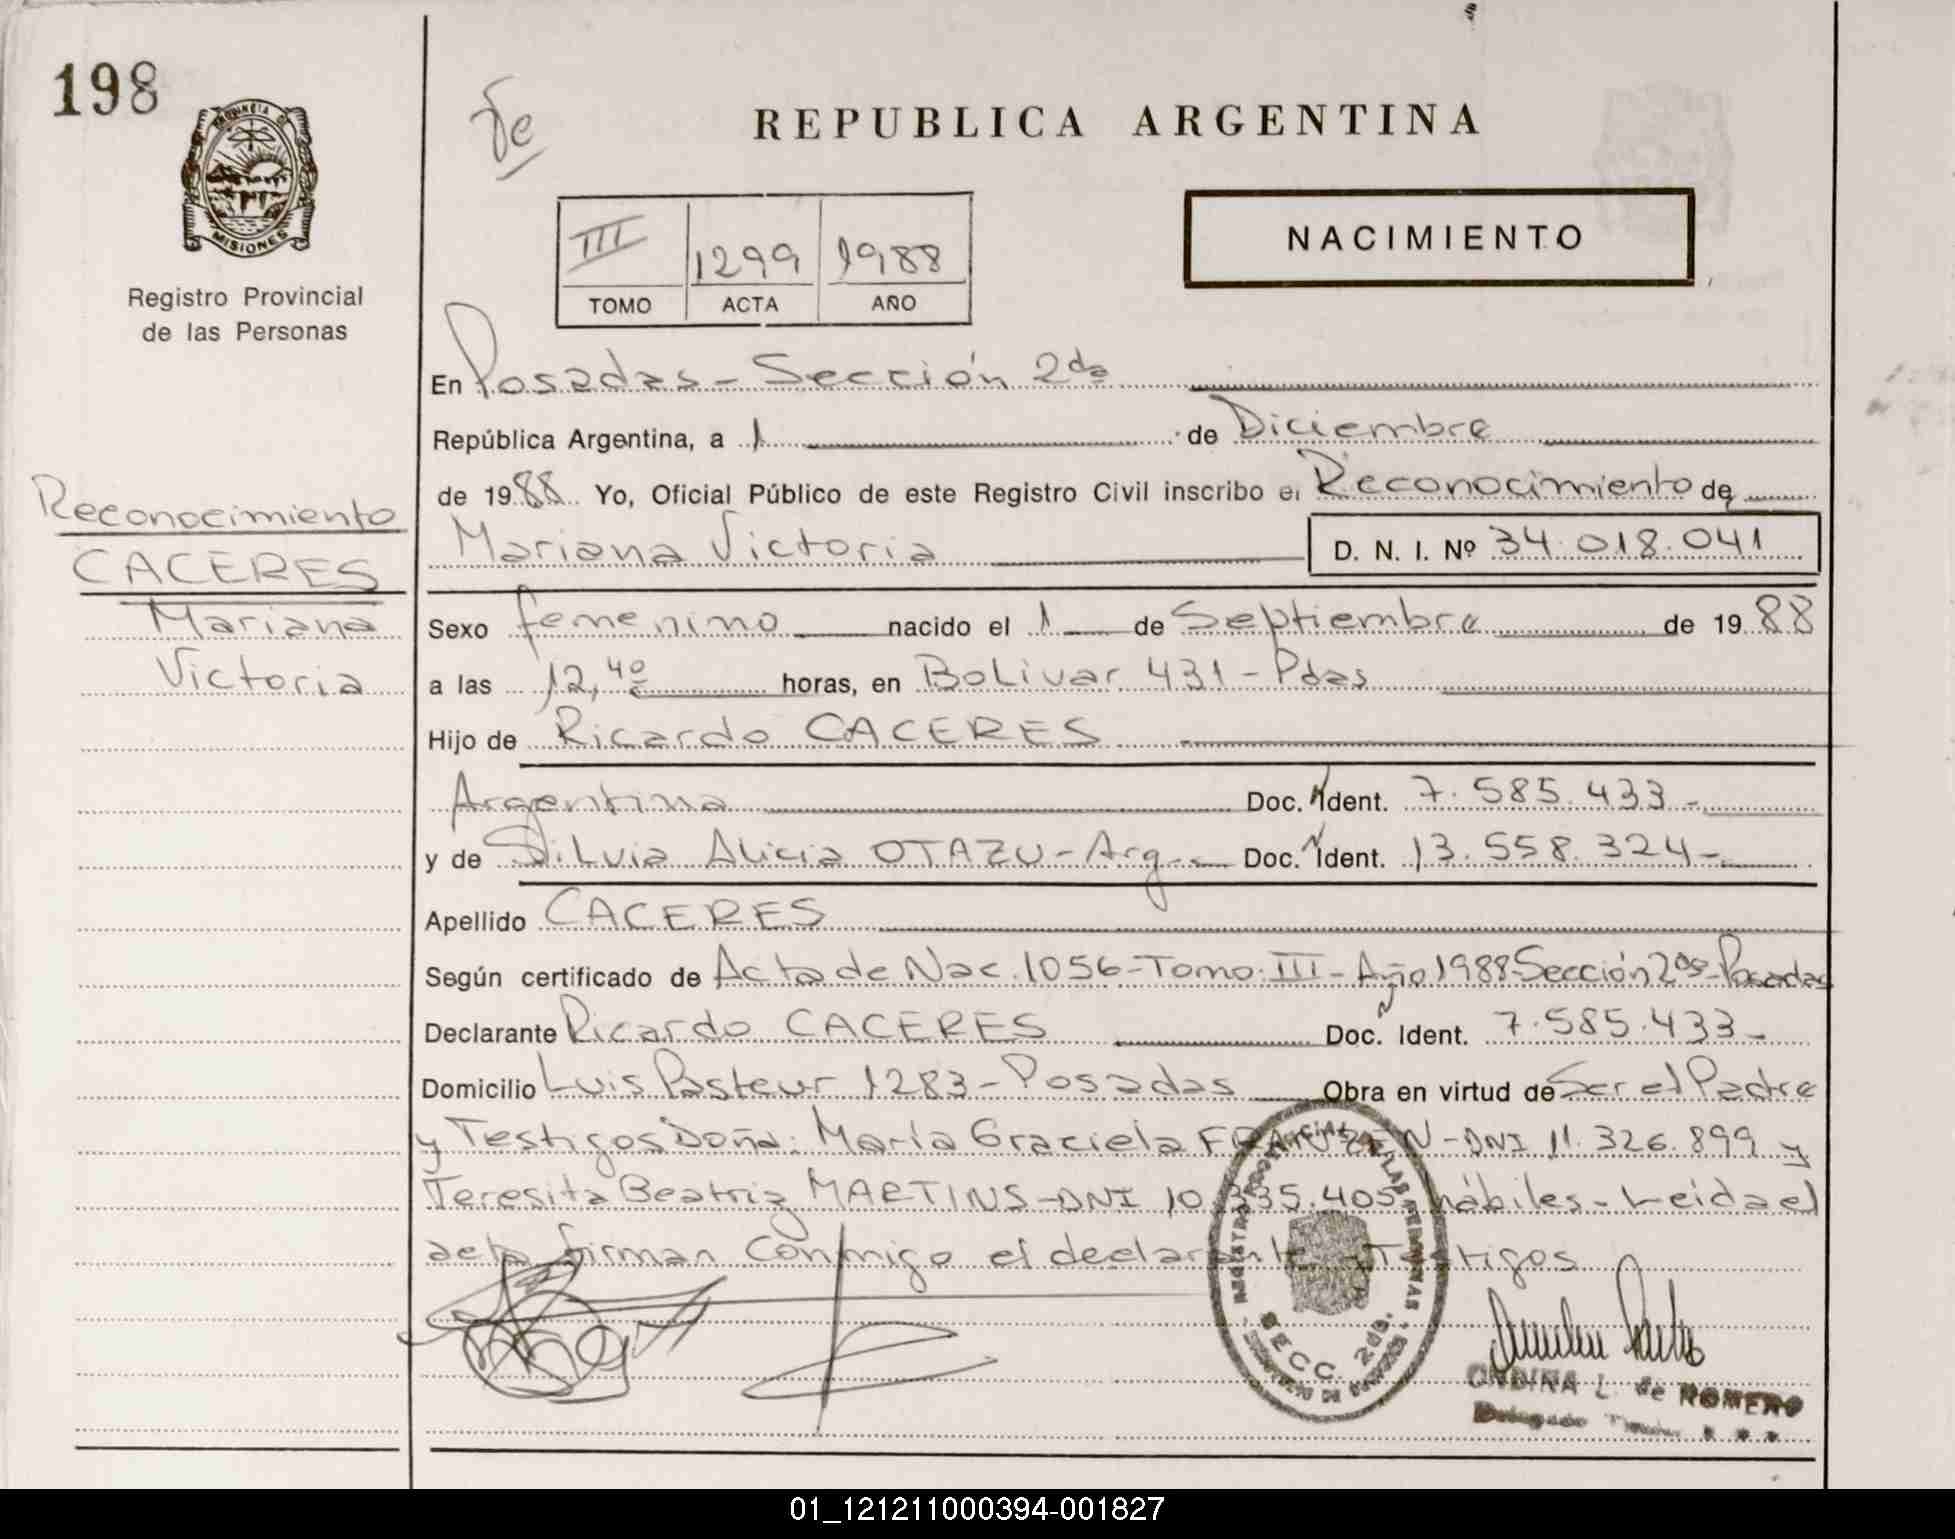 198
PROVINCIA D
MISIONES
Registro Provincial
de las Personas
Reconocimiento
CACERES
Mariana
Victoria
REPUBLICA ARGENTINA
III 1299 1988
TOMO ACTA AÑO
NACIMIENTO
En Posadas - Sección 2da
República Argentina, a 1 de Diciembre
de 1988 Yo, Oficial Público de este Registro Civil inscribo el Reconocimiento de
Mariana Victoria D. N. I. Nº 34.018.041
Sexo femenino nacido el 1 de Septiembre de 1988
a las 12,40 horas, en Bolivar 431 - Pdas
Hijo de Ricardo CACERES
Argentina Doc. Ident. 7.585.433 -
y de Silvia Alicia OTAZU - Arg. - Doc. Ident. 13.558.324 -
Apellido CACERES
Según certificado de Acta de Nac. 1056 - Tomo: III - Año 1988 Sección 2da - Posadas
Declarante Ricardo CACERES Doc. Ident. 7.585.433 -
Domicilio Luis Pasteur 1283 - Posadas Obra en virtud de Ser el Padre
y Testigos Doña: María Graciela - DNI 11.326.899 y
Teresita Beatriz MARTINS - DNI 10. 335.405 hábiles - Leida el
acta firman conmigo el declarante y Testigos
SECC. 2da.
ONDINA L. de ROMERO
01_121211000394-001827